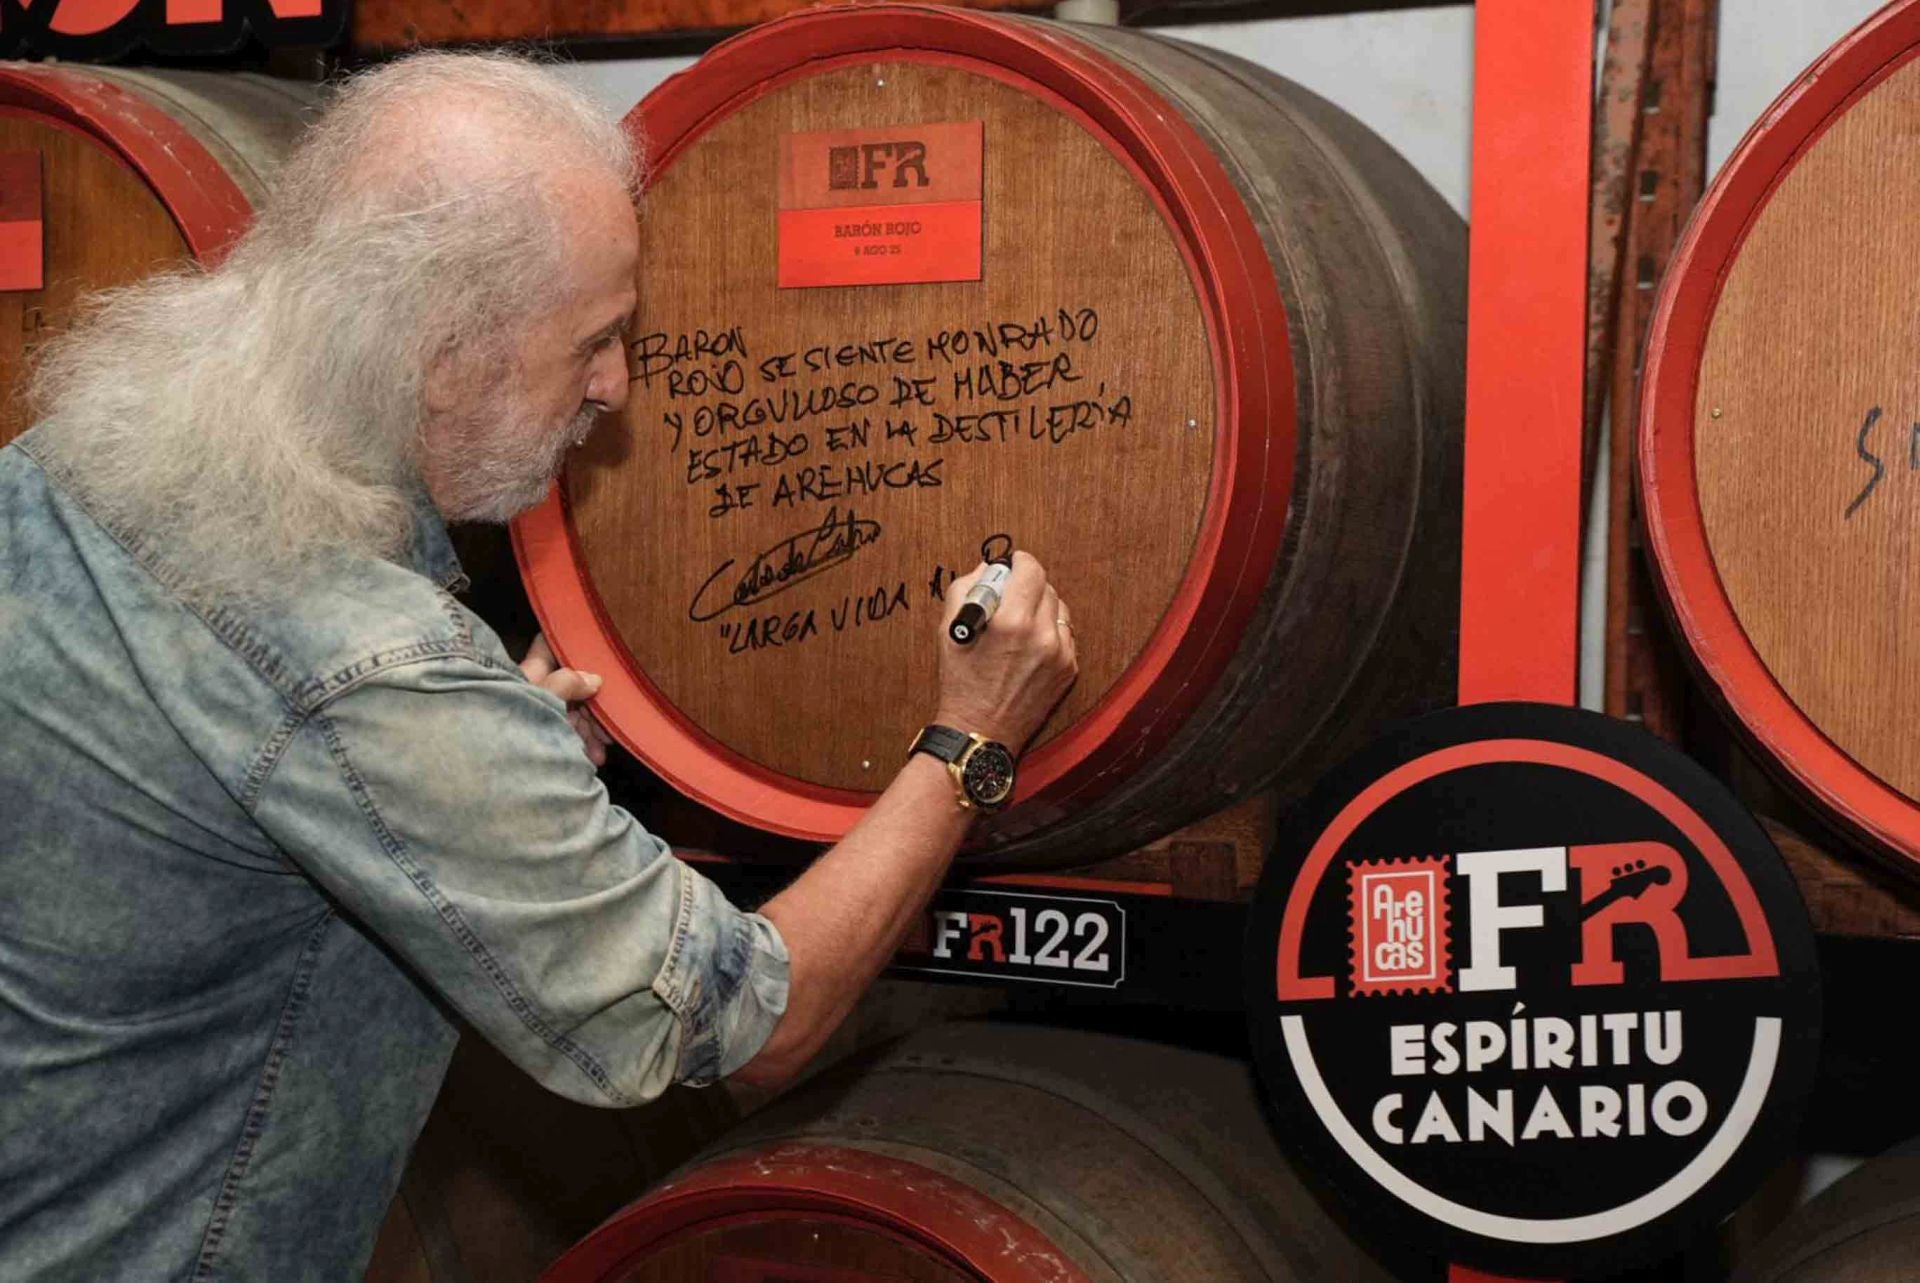 ON
FR
BARÓN ROJO
9 AGO 25
BARON
ROJO SE SIENTE HONRADO
Y ORGULLOSO DE HABER
ESTADO EN LA DESTILERÍA
DE AREHUCAS
"LARGA VIDA AL
FR122
Arehucas
FR
ESPÍRITU
CANARIO